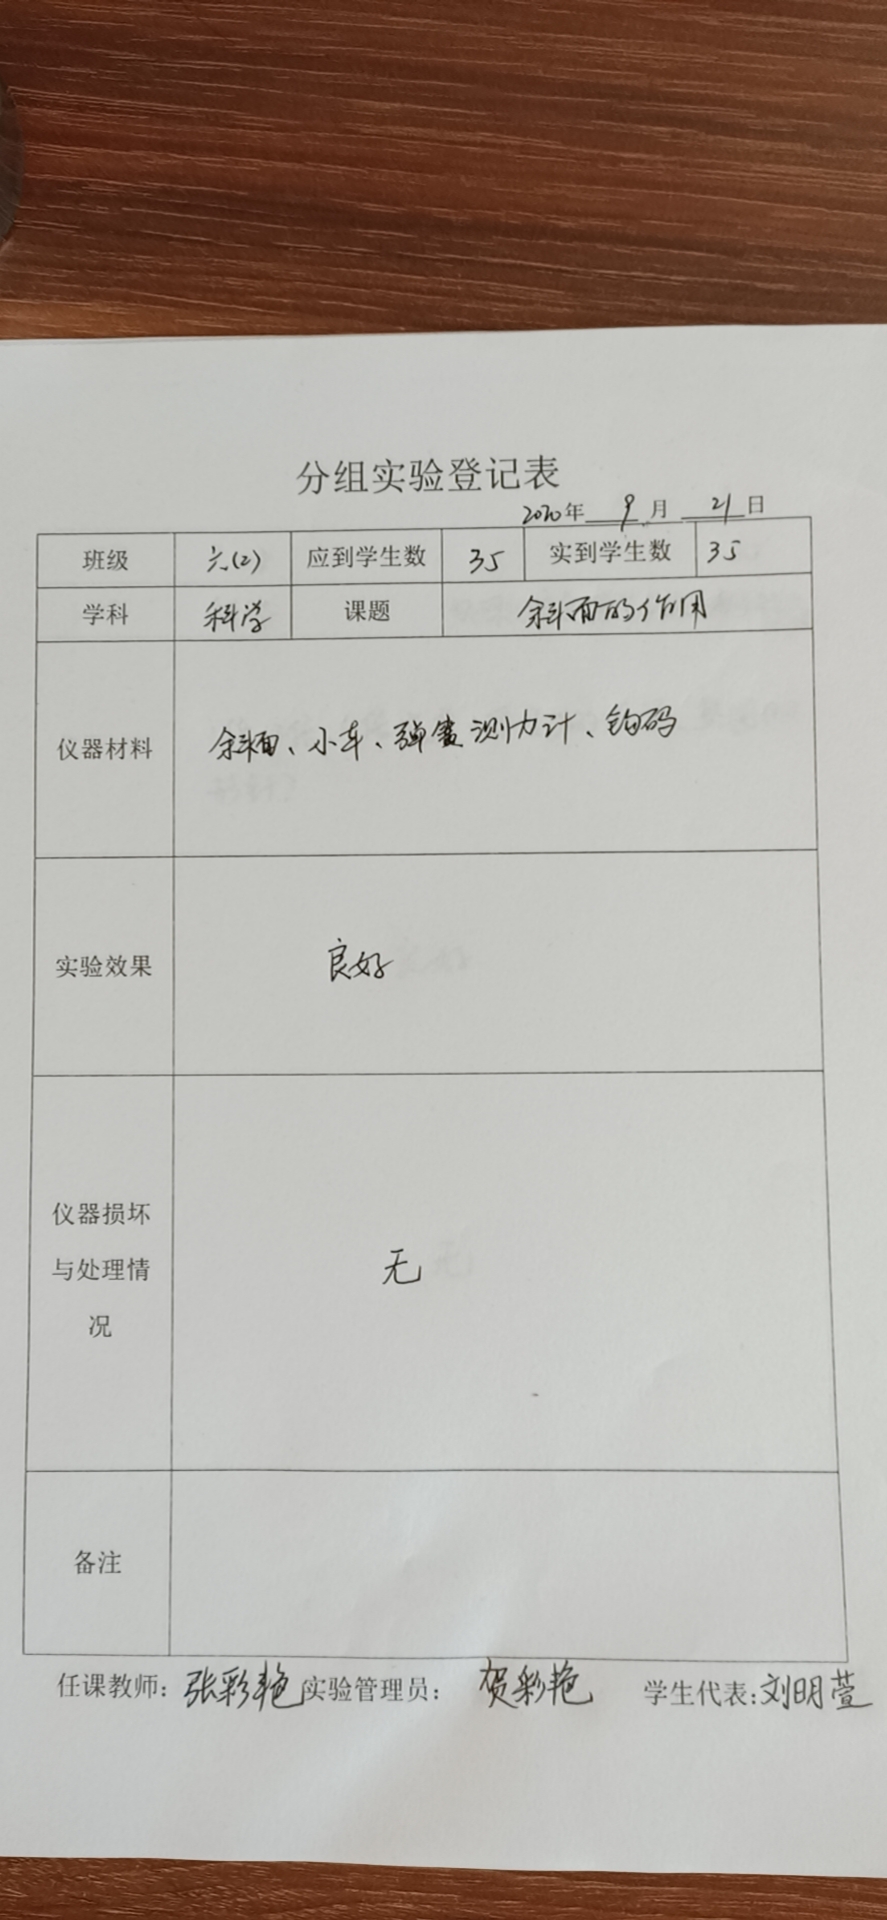 分组实验登记表
2020年 9 月 21 日
班级 六(2) 应到学生数 35 实到学生数 35
学科 科学 课题 斜面的作用
仪器材料 斜面、小车、弹簧测力计、钩码
实验效果 良好
仪器损坏
与处理情 无
况
备注
任课教师: 张彩艳 实验管理员: 贺彩艳 学生代表: 刘明萱